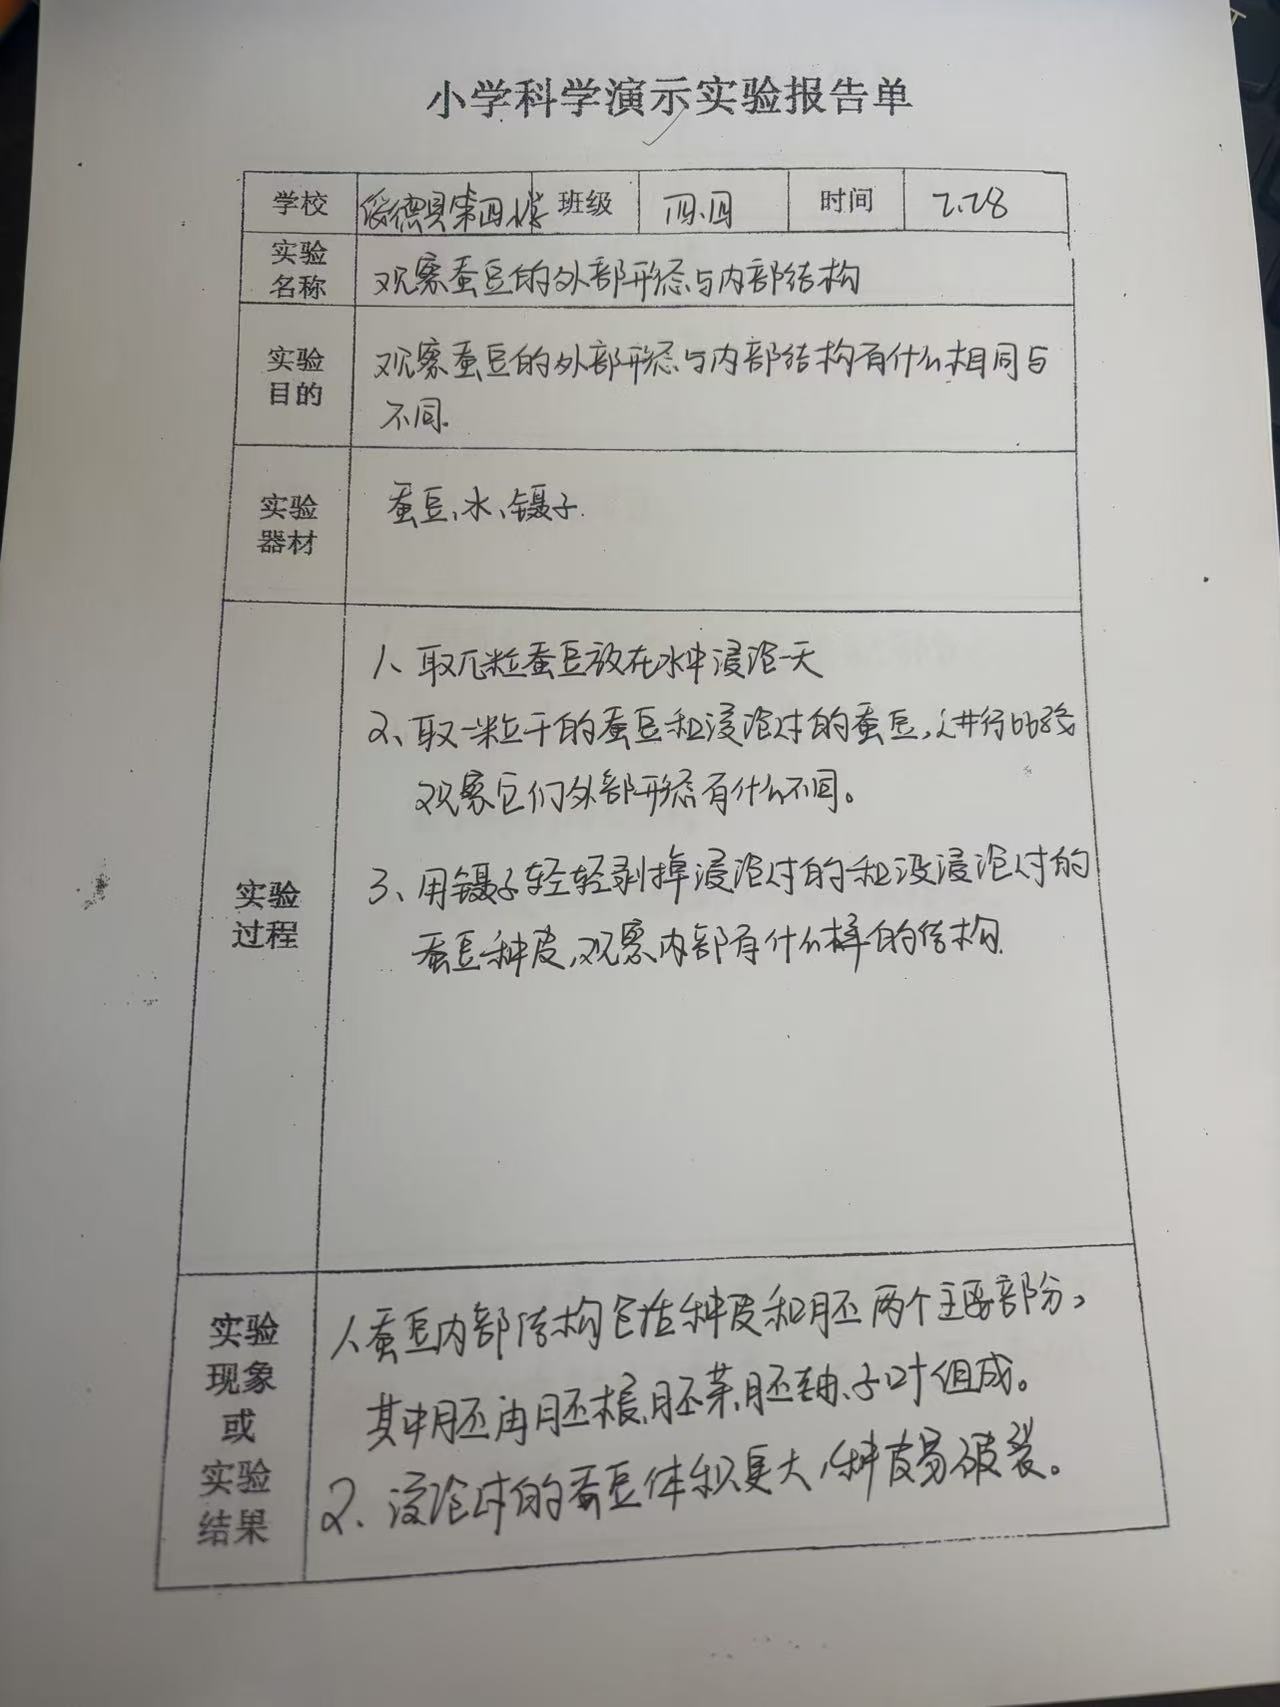 小学科学演示实验报告单
学校 绥德县第四小学 班级 四.四 时间 2.28
实验
名称
观察蚕豆的外部形态与内部结构
实验
目的
观察蚕豆的外部形态与内部结构有什么相同与
不同.
实验
器材
蚕豆、水、镊子.
实验
过程
1、取几粒蚕豆放在水中浸泡一天
2、取一粒干的蚕豆和浸泡过的蚕豆,进行比较
观察它们外部形态有什么不同。
3、用镊子轻轻剥掉浸泡过的和没浸泡过的
蚕豆种皮,观察内部有什么样的结构.
实验
现象
或
实验
结果
1、蚕豆内部结构包括种皮和胚两个主要部分,
其中胚由胚根、胚芽、胚轴、子叶组成。
2、浸泡过的蚕豆体积更大,种皮易破裂。